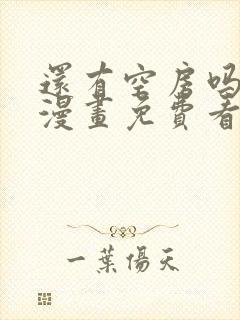 還有空房嗎
漫畫免費看
一葉傷天